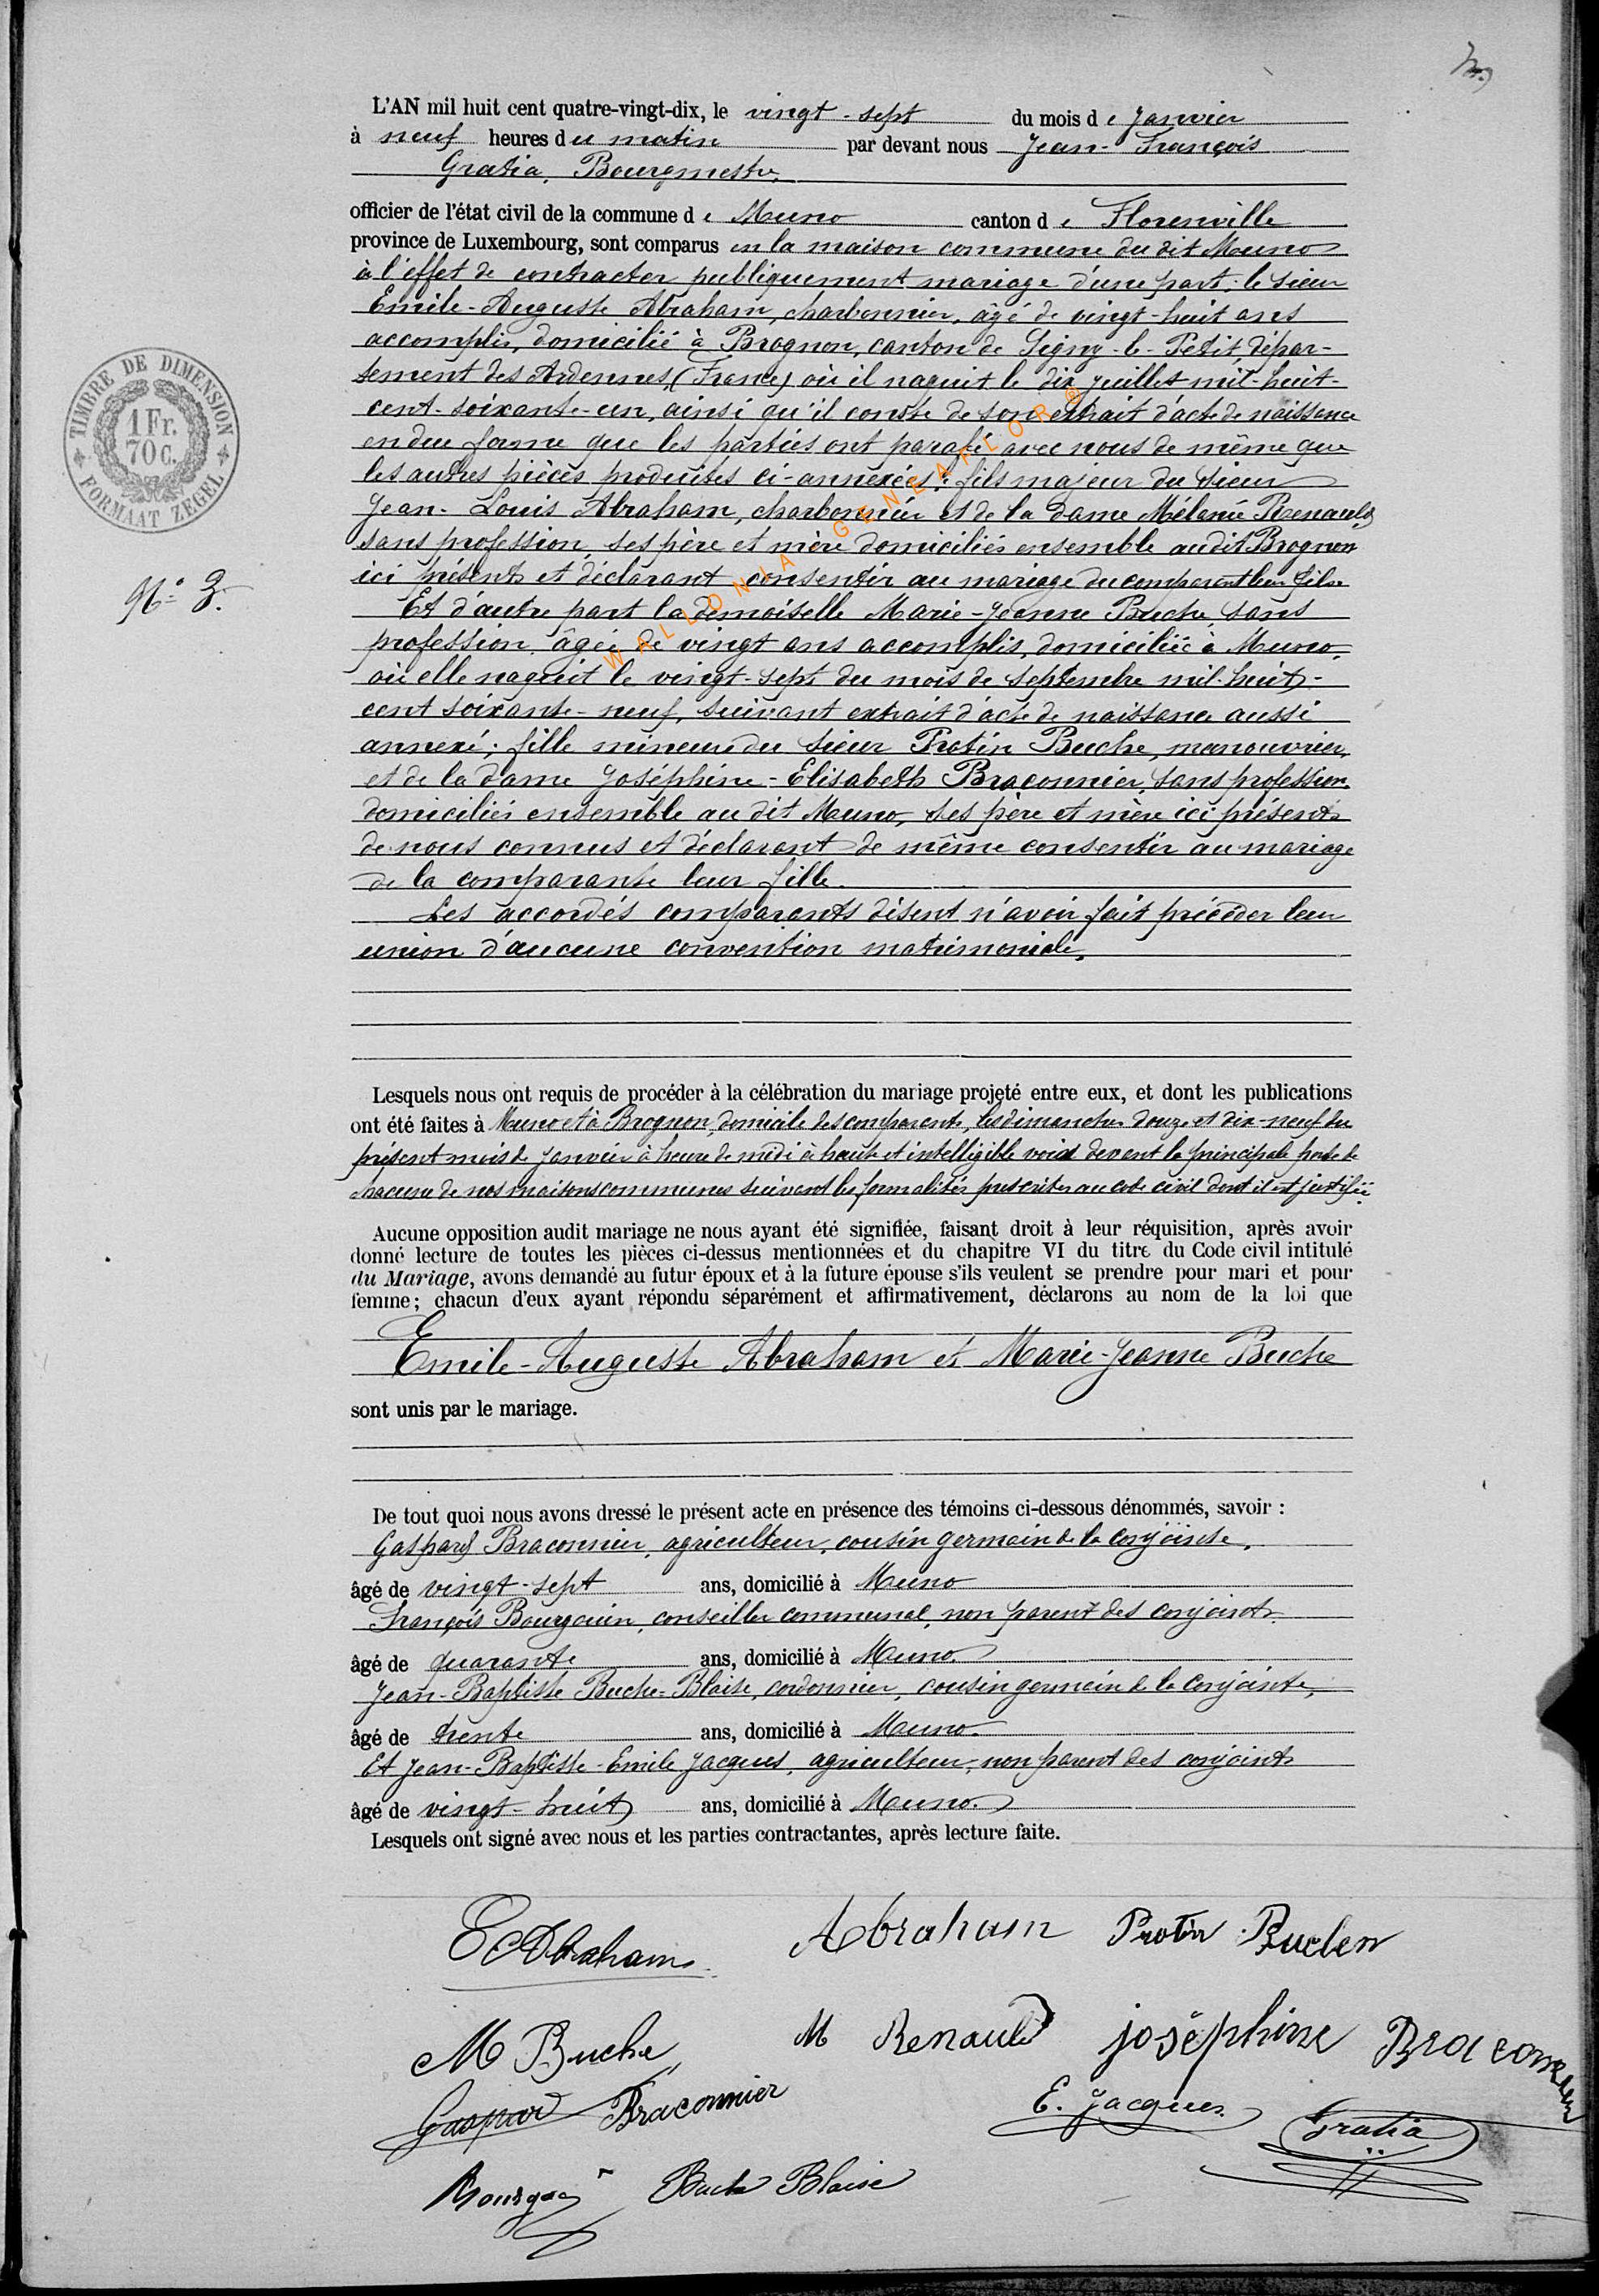 L'AN mil huit cent quatre-vingt-dix, le vingt-sept du mois de Janvier
à neuf heures du matin par devant nous Jean-François
Gratia, Bourgmestre,
officier de l'état civil de la commune de Muno canton de Florenville
province de Luxembourg, sont comparus en la maison commune du dit Muno
à l'effet de contracter publiquement mariage d'une part, le sieur
Emile-Auguste Abraham, charbonnier, âgé de vingt-huit ans
accomplis, domicilié à Brognon, canton de Signy-le-Petit, dépar-
tement des Ardennes, (France) où il naquit le dix Juillet mil-huit-
cent-soixante-un, ainsi qu'il conste de son extrait d'acte de naissance
en due forme que les parties ont parafé avec nous de même que
les autres pièces produites ci-annexées; fils majeur du sieur
Jean-Louis Abraham, charbonnier et de la dame Mélanie Renauld
sans profession, ses père et mère domiciliés ensemble audit Brognon
ici présents et déclarant consentir au mariage du comparant leur fils.
Et d'autre part la demoiselle Marie-Jeanne Buche, sans
profession, âgée de vingt ans accomplis, domiciliée à Muno,
où elle naquit le vingt-sept du mois de Septembre mil-huit-
cent soixante-neuf, suivant extrait d'acte de naissance aussi
annexé; fille mineure du sieur Protin Buche, manouvrier,
et de la dame Joséphine-Elisabeth Braconnier, sans profession,
domiciliés ensemble au dit Muno, ses père et mère ici présents
de nous connus et déclarant de même consentir au mariage
de la comparante leur fille.
Les accordés comparants disent n'avoir fait précéder leur
union d'aucune convention matrimoniale,
TIMBRE DE DIMENSION
1 Fr.
70 C.
FORMAAT ZEGEL
N° 3.
WALLONIA GENEAFLOR ©
Lesquels nous ont requis de procéder à la célébration du mariage projeté entre eux, et dont les publications
ont été faites à Muno et à Brognon, domicile des comparants, les dimanches douze et dix-neuf du
présent mois de Janvier à heure de midi à haute et intelligible voix devant la principale porte de
chacune de nos maisons communes suivant les formalités prescrites au code civil dont il est justifié.
Aucune opposition audit mariage ne nous ayant été signifiée, faisant droit à leur réquisition, après avoir
donné lecture de toutes les pièces ci-dessus mentionnées et du chapitre VI du titre du Code civil intitulé
du Mariage, avons demandé au futur époux et à la future épouse s'ils veulent se prendre pour mari et pour
femme; chacun d'eux ayant répondu séparément et affirmativement, déclarons au nom de la loi que
Emile-Auguste Abraham et Marie-Jeanne Buche
sont unis par le mariage.
De tout quoi nous avons dressé le présent acte en présence des témoins ci-dessous dénommés, savoir :
Gaspard Braconnier, agriculteur, cousin germain de la conjointe,
âgé de vingt-sept ans, domicilié à Muno
François Bourgouin, conseiller communal, non parent des conjoints
âgé de quarante ans, domicilié à Muno.
Jean-Baptiste Buche-Blaise, cordonnier, cousin germain de la conjointe,
âgé de trente ans, domicilié à Muno.
Et Jean-Baptiste-Emile Jacques, agriculteur, non parent des conjoints
âgé de vingt-huit ans, domicilié à Muno.
Lesquels ont signé avec nous et les parties contractantes, après lecture faite.
E Abraham Abraham Protin Buchen
M Buche M Renauld joséphine Braconnier
Gaspard Braconnier E. Jacques Gratia
Buche Blaise